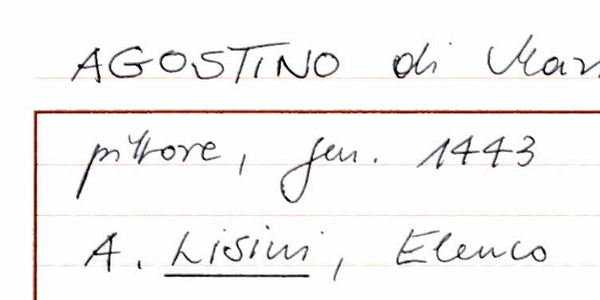 AGOSTINO di Mar
pittore, gen. 1443
A. Lisini, Elenco